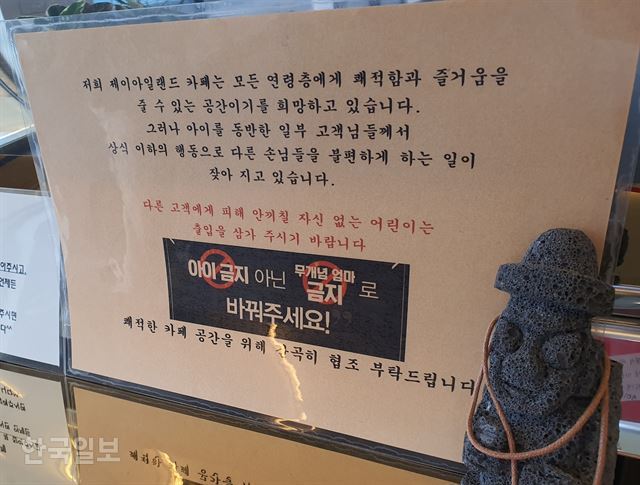 저희 제이아일랜드 카페는 모든 연령층에게 쾌적함과 즐거움을
줄 수 있는 공간이기를 희망하고 있습니다.
그러나 아이를 동반한 일부 고객님들께서
상식 이하의 행동으로 다른 손님들을 불편하게 하는 일이
잦아 지고 있습니다.
다른 고객에게 피해 안끼칠 자신 없는 어린이는
출입을 삼가 주시기 바랍니다
아이 금지 아닌 무개념 엄마 금지 로
바꿔주세요!
쾌적한 카페 공간을 위해 간곡히 협조 부탁드립니다
한국일보